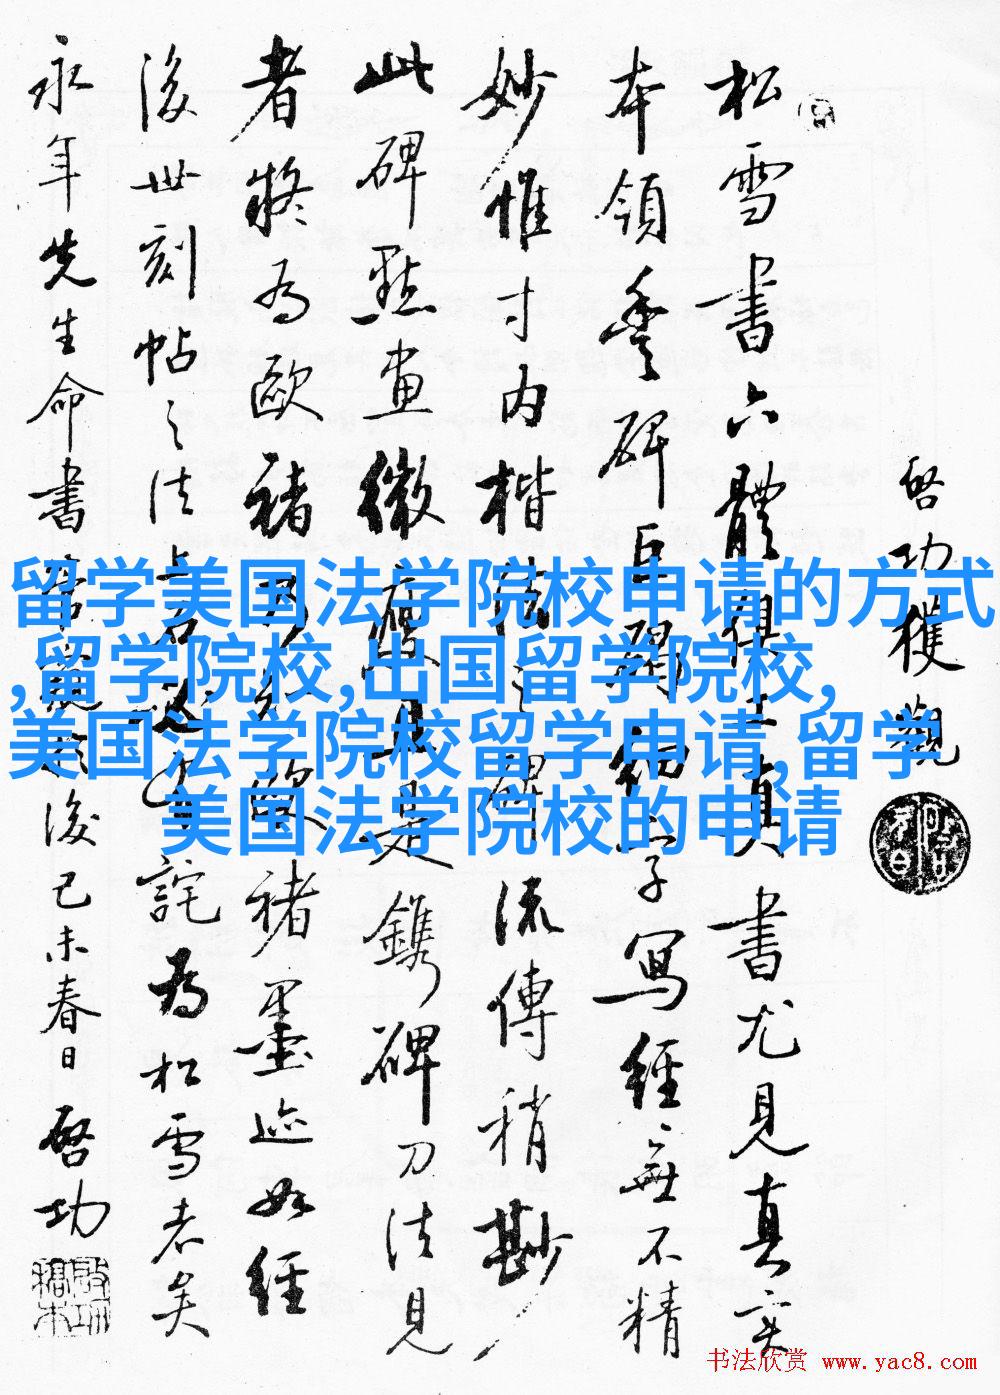 啓功獲觀
松雪書六體俱工真書尤見真實
本領豐碑巨碣細字寫經無不精
妙惟寸內楷流傳稍尠
此碑點畫微瘦是鐫碑刀法見
者將為歐褚褚墨迹如經
後世刻帖之法詫為松雪者矣
永年先生命書後己未春日啓功
留学美国法学院校申请的方式
,留学院校,出国留学院校,
美国法学院校留学申请,留学
美国法学院校的申请
书法欣赏 www.yac8.com